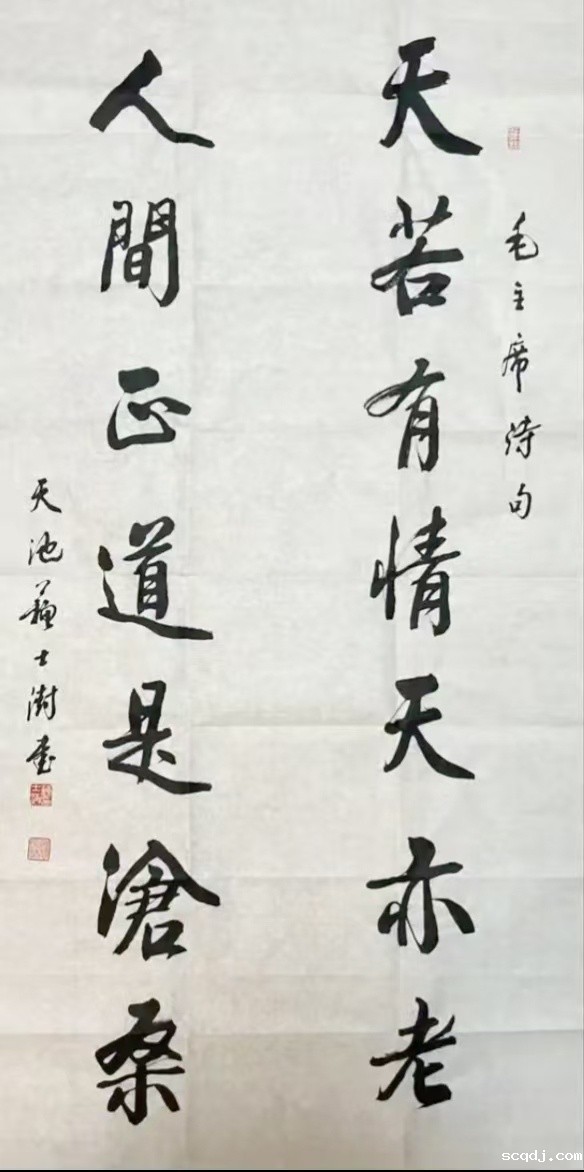 毛主席诗句
天若有情天亦老
人間正道是滄桑
天池蘇士澍書
scqdj.com